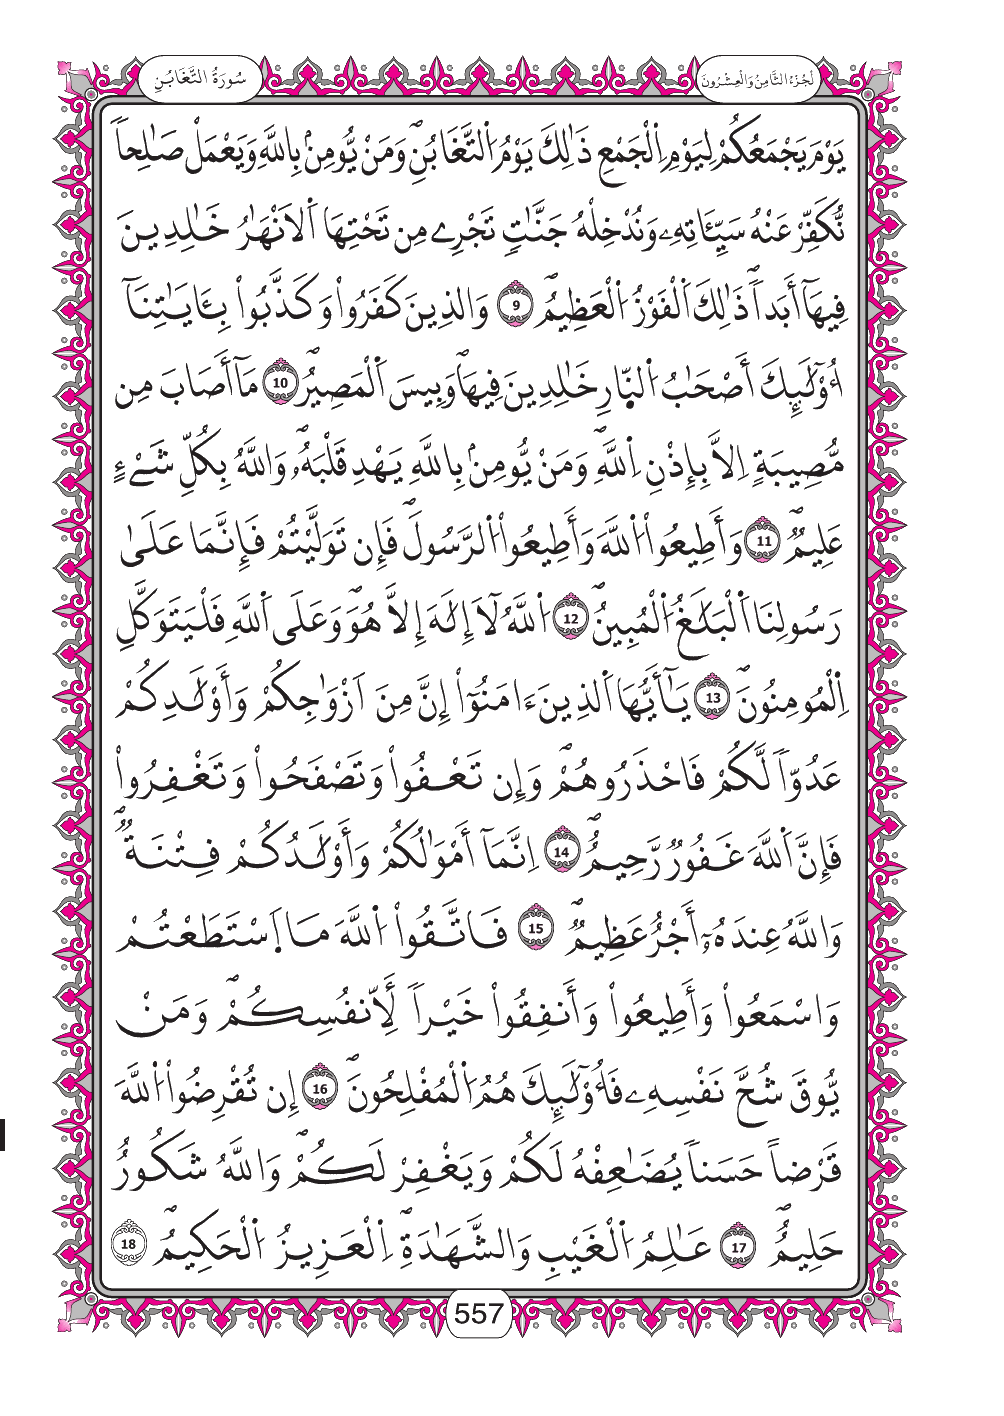 سُورَةُ التَّغَابُنِ
الجُزْءُ الثَّامِنُ وَالْعِشْرُونَ
يَوْمَ يَجْمَعُكُمْ لِيَوْمِ اِ۬لْجَمْعِ ذَٰلِكَ يَوْمُ اُ۬لتَّغَابُنِۖ وَمَنْ يُّومِنۢ بِاللَّهِ وَيَعْمَلْ صَٰلِحاٗ
نُّكَفِّرْ عَنْهُ سَيِّـَٔاتِهِۦ وَنُدْخِلْهُ جَنَّٰتٖ تَجْرِے مِن تَحْتِهَا اَ۬لَانْهَٰرُ خَٰلِدِينَ
فِيهَآ أَبَداٗۖ ذَٰلِكَ اَ۬لْفَوْزُ اُ۬لْعَظِيمُۖ 9 وَالذِينَ كَفَرُواْ وَكَذَّبُواْ بِـَٔايَٰتِنَآ
أُوْلَٰٓئِكَ أَصْحَٰبُ اُ۬لنّ۪ارِ خَٰلِدِينَ فِيهَاۖ وَبِيسَ اَ۬لْمَصِيرُۖ 10 مَآ أَصَابَ مِن
مُّصِيبَةٍ اِلَّا بِإِذْنِ اِ۬للَّهِۖ وَمَنْ يُّومِنۢ بِاللَّهِ يَهْدِ قَلْبَهُۥۖ وَاللَّهُ بِكُلِّ شَےْءٍ
عَلِيمٞۖ 11 وَأَطِيعُواْ اُ۬للَّهَ وَأَطِيعُواْ اُ۬لرَّسُولَۖ فَإِن تَوَلَّيْتُمْ فَإِنَّمَا عَلَىٰ
رَسُولِنَا اَ۬لْبَلَٰغُ اُ۬لْمُبِينُۖ 12 اُ۬للَّهُ لَآ إِلَٰهَ إِلَّا هُوَۖ وَعَلَى اَ۬للَّهِ فَلْيَتَوَكَّلِ
اِ۬لْمُومِنُونَۖ 13 يَٰٓأَيُّهَا اَ۬لذِينَ ءَامَنُوٓاْ إِنَّ مِنَ اَزْوَٰجِكُمْ وَأَوْلَٰدِكُمْ
عَدُوّاٗ لَّكُمْ فَاحْذَرُوهُمْۖ وَإِن تَعْفُواْ وَتَصْفَحُواْ وَتَغْفِرُواْ
فَإِنَّ اَ۬للَّهَ غَفُورٞ رَّحِيمٌۖ 14 اِنَّمَآ أَمْوَٰلُكُمْ وَأَوْلَٰدُكُمْ فِتْنَةٞۖ
وَاللَّهُ عِندَهُۥٓ أَجْرٌ عَظِيمٞۖ 15 فَاتَّقُواْ اُ۬للَّهَ مَا اَ۪سْتَطَعْتُمْ
وَاسْمَعُواْ وَأَطِيعُواْ وَأَنفِقُواْ خَيْراٗ لِّأَنفُسِكُمْۖ وَمَنْ
يُّوقَ شُحَّ نَفْسِهِۦ فَأُوْلَٰٓئِكَ هُمُ اُ۬لْمُفْلِحُونَۖ 16 إِن تُقْرِضُواْ اُ۬للَّهَ
قَرْضاً حَسَناٗ يُضَٰعِفْهُ لَكُمْ وَيَغْفِرْ لَكُمْۖ وَاللَّهُ شَكُورٌ
حَلِيمٌۖ 17 عَٰلِمُ اُ۬لْغَيْبِ وَالشَّهَٰدَةِۖ اِ۬لْعَزِيزُ اُ۬لْحَكِيمُۖ 18
557